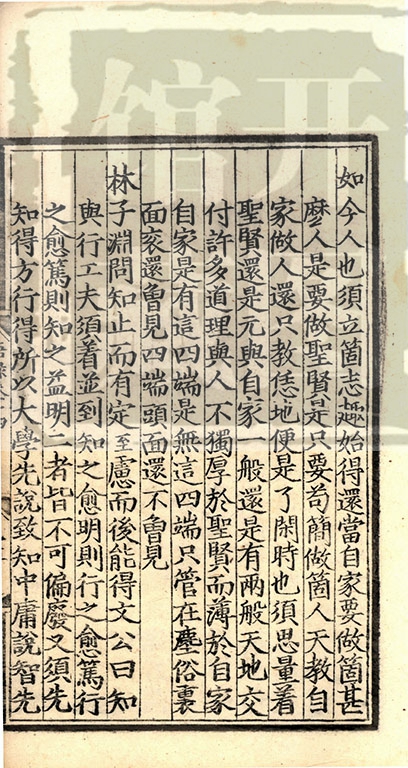 如今人也須立箇志趣始得還當自家要做箇甚
麽人是要做聖賢是只要苟簡做箇人天教自
家做人還只教恁地便是了閑時也須思量着
聖賢還是元與自家一般還是有兩般天地交
付許多道理與人不獨厚於聖賢而薄於自家
自家是有這四端是無這四端只管在塵俗裏
面衮還曾見四端頭面還不曾見
林子淵問知止而有定至慮而後能得文公曰知
與行工夫須着並到知之愈明則行之愈篤行
之愈篤則知之益明二者皆不可偏廢又須先
知得方行得所以大學先說致知中庸說智先